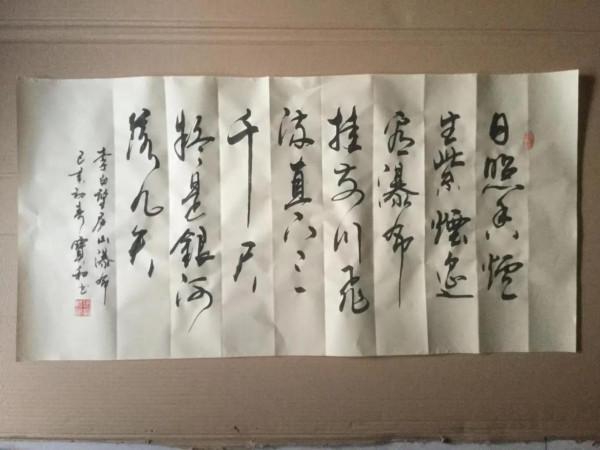 日照香爐
生紫煙遥
看瀑布
挂前川飛
流直下三
千尺
疑是銀河
落九天
李白望庐山瀑布
己亥初春寶和书